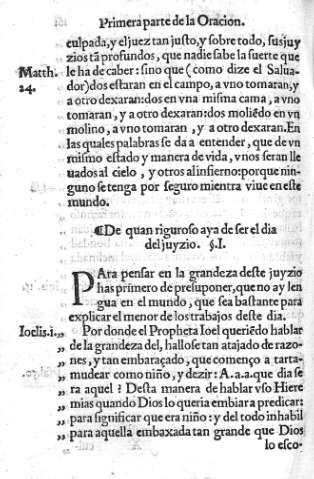 Primera parte de la Oracion.
culpada, y el juez tan justo, y sobre todo, sus juy
zios tã profundos, que nadie sabe la suerte que
Matth. le ha de caber: sino que (como dize el Salua-
24. dor) dos estaran en el campo, a vno tomaran, y
a otro dexaran: dos en vna misma cama, a vno
tomaran, y a otro dexaran: dos moliẽdo en vn
molino, a vno tomaran, y a otro dexaran. En
las quales palabras se da a entender, que de vn
mismo estado y manera de vida, vnos seran lle
uados al cielo, y otros al infierno: porque nin-
guno se tenga por seguro mientra viue en este
mundo.
¶De quan riguroso aya de ser el dia
del juyzio. §. I.
PAra pensar en la grandeza deste juyzio
has primero de presuponer, que no ay len
gua en el mundo, que sea bastante para
explicar el menor de los trabajos deste dia.
Ioelis. i. „ Por donde el Propheta Ioel queriẽdo hablar
„ de la grandeza del, hallose tan atajado de razo-
„ nes, y tan embaraçado, que començo a tarta-
„ mudear como niño, y dezir: A.a.a. que dia se
„ ra aquel? Desta manera de hablar vso Hiere
„ mias quando Dios lo queria embiar a predicar:
„ para significar que era niño: y del todo inhabil
„ para aquella embaxada tan grande que Dios
lo esco-